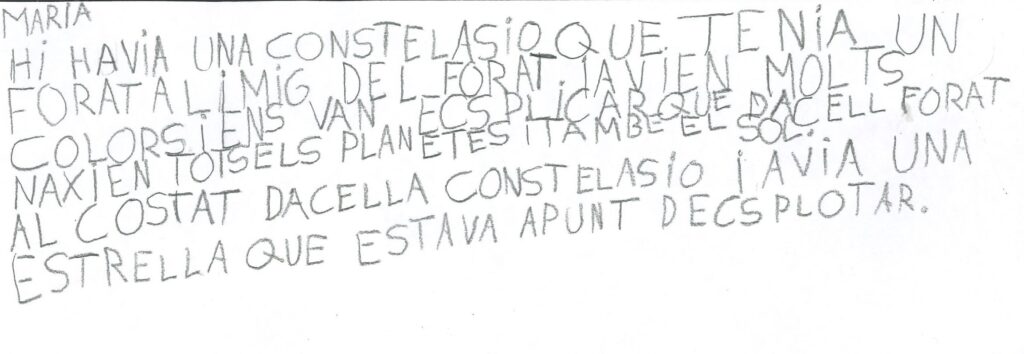 MARIA
Hi HAViA UNA CONSTELASiO QUE TENiA UN
FORAT AL iMiG DEL FORAT iAViEN MOLTS
COLORS i ENS VAN ECSPLiCAR QUE DACELL FORAT
NAXiEN TOTS ELS PLANETES i TAMBE EL SOL.
AL COSTAT DACELLA CONSTELASiO i AViA UNA
ESTRELLA QUE ESTAVA APUNT DECSPLOTAR.